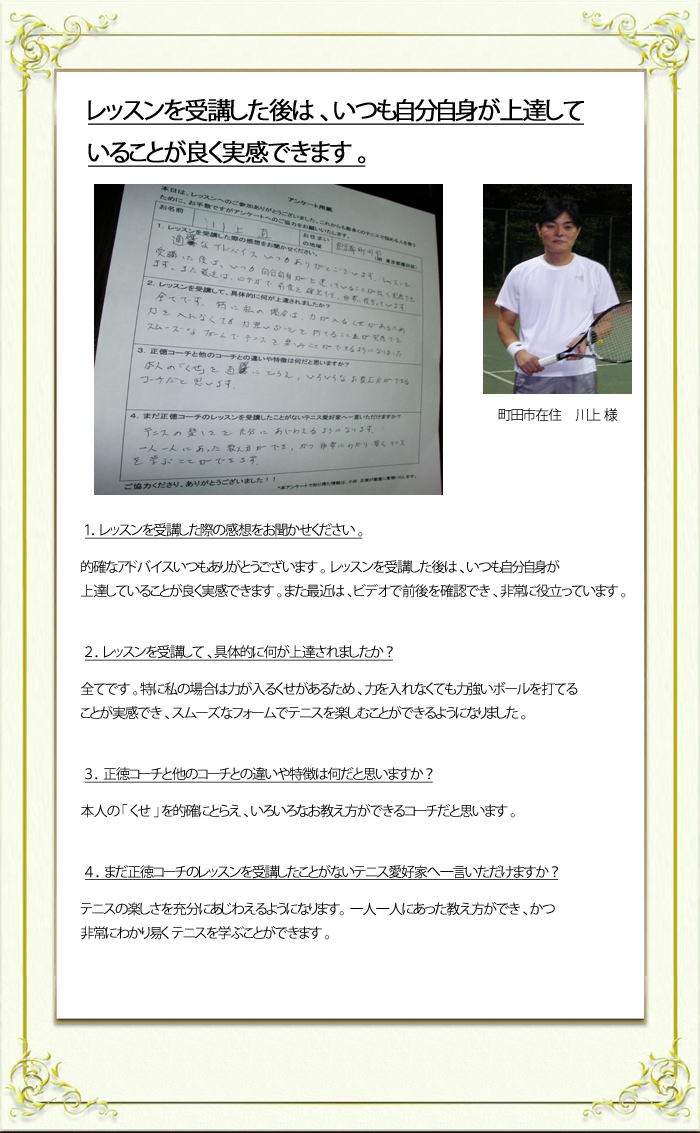 レッスンを受講した後は、いつも自分自身が上達して
いることが良く実感できます。
アンケート用紙
本日は、レッスンへのご参加ありがとうございました。これからも数多くのテニスで悩める人を救う
ために、お手数ですがアンケートへのご協力をお願いいたします。
お名前
川上
お住まい
の地域
1. レッスンを受講した際の感想をお聞かせください。
なアドバイスいつもありがとうございます。レッスンを
受講した後は、いつも自分自身が上達していることが良く実感でき
ます。また最近は、ビデオで前後を確認でき、非常に役立っています
2. レッスンを受講して、具体的に何が上達されましたか？
全てです。特に私の場合は、力が入るくせがあるため
力を入れなくても力強いボールを打てることが実感でき
スムーズなフォームでテニスを楽しむことができるようになりました
3. 正徳コーチと他のコーチとの違いや特徴は何だと思いますか？
本人の「くせ」を的確にとらえ、いろいろなお教え方ができる
コーチだと思います。
4. まだ正徳コーチのレッスンを受講したことがないテニス愛好家へ一言いただけますか？
テニスの楽しさを充分にあじわえるようになります。
一人一人にあった教え方ができ、かつ非常にわかり易くテニス
を学ぶことができます。
ご協力くださり、ありがとうございました！！
町田市在住　川上 様
1. レッスンを受講した際の感想をお聞かせください。
的確なアドバイスいつもありがとうございます。レッスンを受講した後は、いつも自分自身が
上達していることが良く実感できます。また最近は、ビデオで前後を確認でき、非常に役立っています。
２. レッスンを受講して、具体的に何が上達されましたか？
全てです。特に私の場合は力が入るくせがあるため、力を入れなくても力強いボールを打てる
ことが実感でき、スムーズなフォームでテニスを楽しむことができるようになりました。
３. 正徳コーチと他のコーチとの違いや特徴は何だと思いますか？
本人の「くせ」を的確にとらえ、いろいろなお教え方ができるコーチだと思います。
４. まだ正徳コーチのレッスンを受講したことがないテニス愛好家へ一言いただけますか？
テニスの楽しさを充分にあじわえるようになります。一人一人にあった教え方ができ、かつ
非常にわかり易くテニスを学ぶことができます。